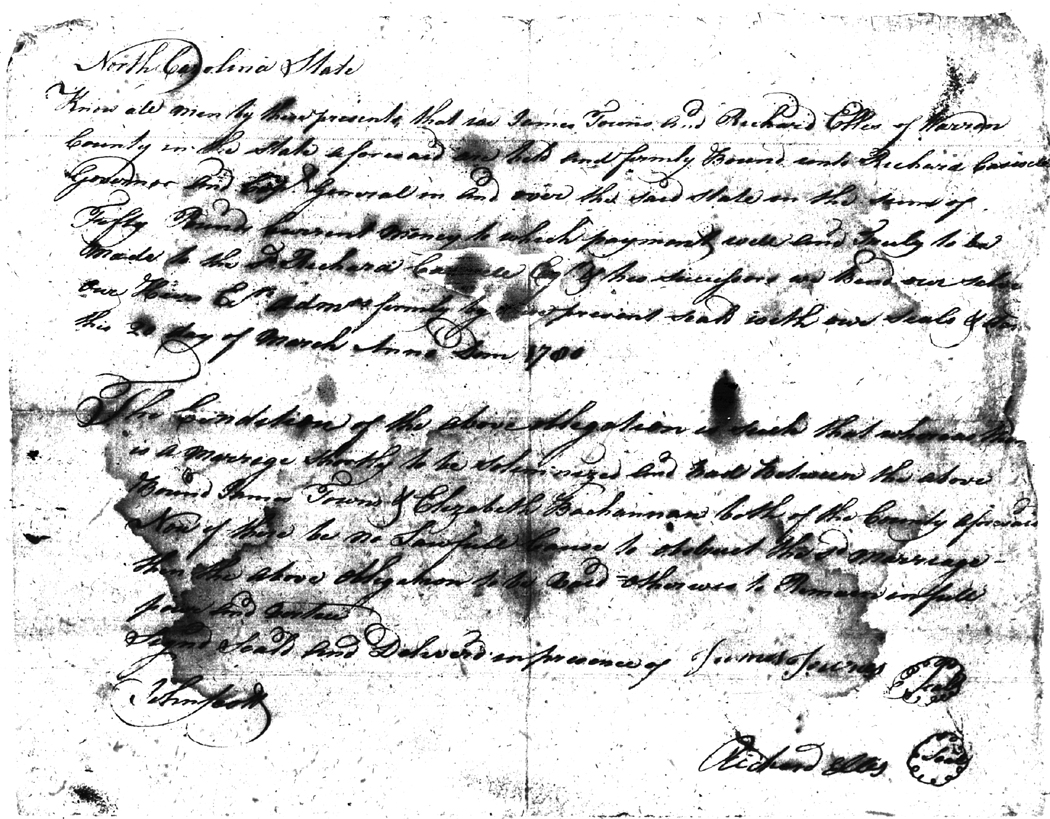 North Carolina State
Know all men by these presents that we James Towns and Richard Ellis of Warren
County in the State aforesaid are held and firmly Bound unto Richard Caswell
Governor and Capt General in and over the said State in the sum of
Fifty Pounds Current money to which payment well and Truly to be
Made to the Sd Richard Caswell Esqr & his successors we Bind our selves
our Heirs Exrs Admrs firmly by these present seald with our seals &
this 20 day of March Anno Dom
The Condition of the above obligation is such that whereas there
is a marrige shortly to be solemnized and had Between the above
Bound James Town & Elizabeth Bachannan both of the County aforesaid
Now if there be no Lawfull cause to obstruct the sd marriage
then the above obligation to be Void otherwis to Remain in full
and
Signd Seald and Deliverd in presence of James Townes Seal
John Scott
Richard Ellis Seal